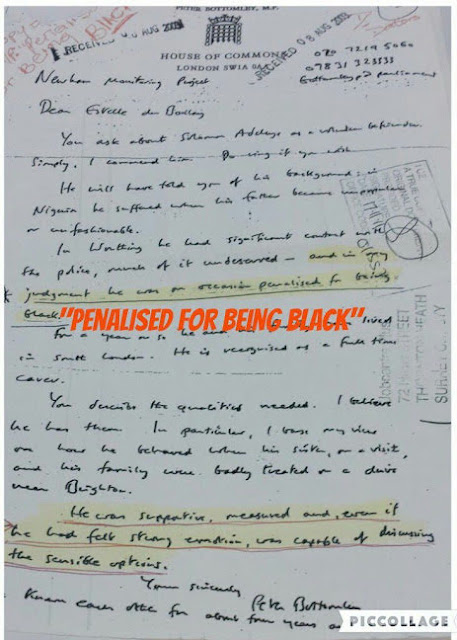 PETER BOTTOMLEY, M.P.
RECEIVED 08 AUG 2003
RECEIVED 08 AUG 2003
HOUSE OF COMMONS
LONDON SW1A 0AA
020 7219 5060
07831 323333
Newham Monitoring Project
Dear Estelle du Boulay
You ask about Solomon as a volunteer befriender.
Simply, I commend him. Do ring if you wish
He will have told you of his background: in
Nigeria he suffered when his father became unpopular
or unfashionable.
In Worthing he had significant contact with
the police, much of it undeserved – and in my
judgment he was on occasion penalised for being
black.
"PENALISED FOR BEING BLACK"
lived
For a year or so he and his
in south London. He is recognised as a full time
carer.
You describe the qualities needed. I believe
he has them. In particular, I base my view
on how he behaved when his sister, on a visit,
and his family were badly treated on a drive
near Brighton.
He was supportive, measured and, even if
he had felt strong emotion, was capable of discussing
the sensible options.
Yours sincerely
Peter Bottomley
for about four years
Jobcentre Plus
THORNTON HEATH
SURREY
PICCOLLAGE